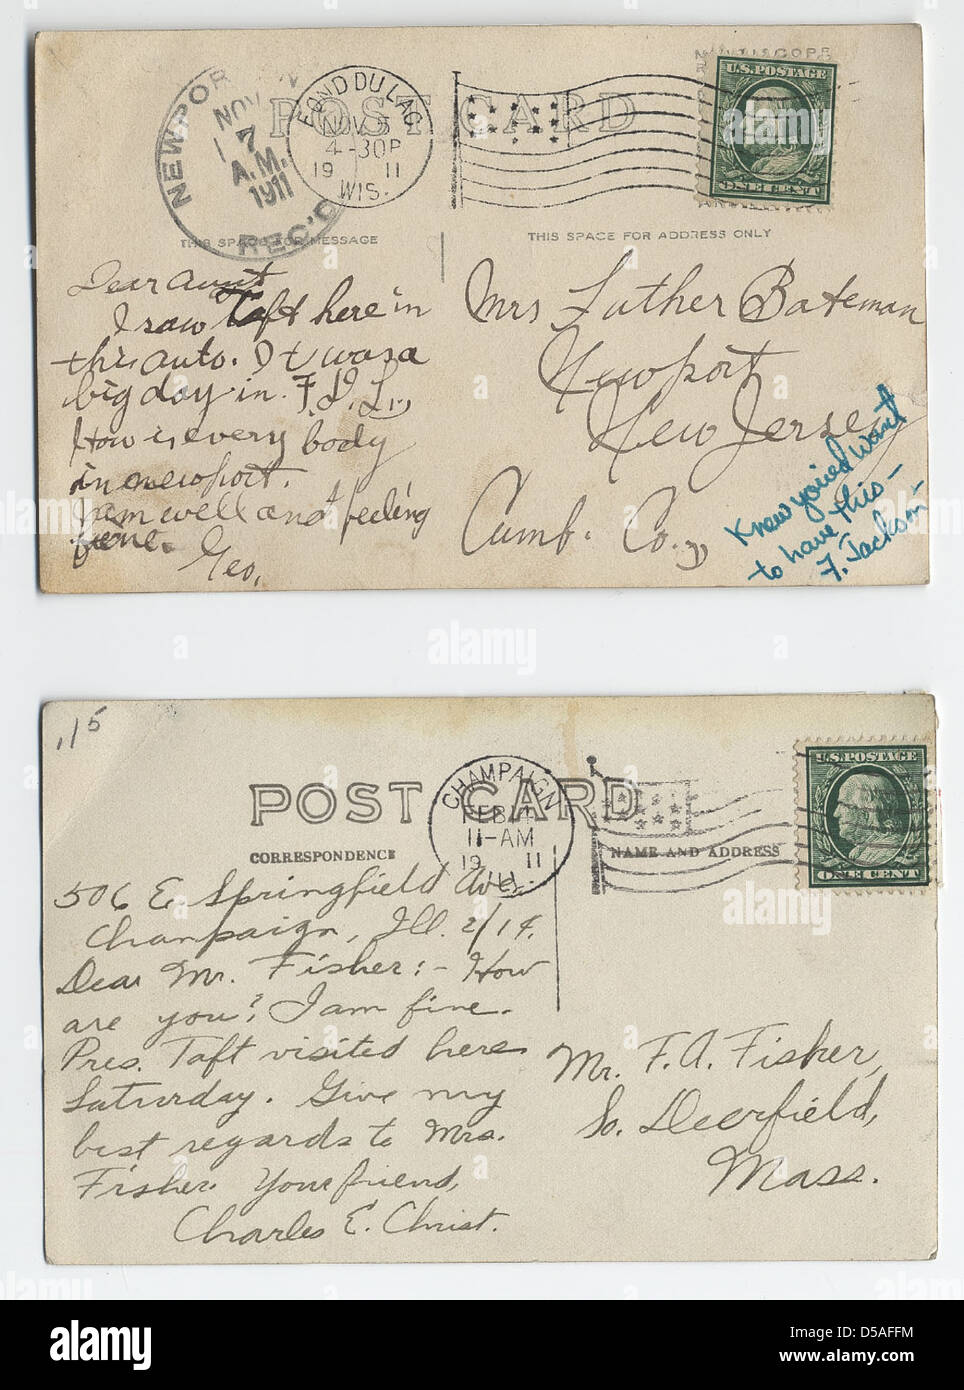 NEWPOR
NOV
7
A.M.
1911
REC'D
FOND DU LAC
NOV
4-30P
19 11
WIS.
POST CARD
U.S. POSTAGE
ONE CENT
THIS SPACE FOR MESSAGE
THIS SPACE FOR ADDRESS ONLY
Dear Aunt
I saw Taft here in
this auto. It was a
big day in F.D.L.
How is every body
in newport.
I am well and feeling
fine.
Geo.
Mrs Luther Bateman
Newport
New Jersey
Cumb. Co.
Knew you'd want
to have this -
F. Jackson -
115
POST CARD
CHAMPAIGN
FEB 14
11-AM
19 11
ILL.
U.S. POSTAGE
ONE CENT
CORRESPONDENCE
NAME AND ADDRESS
506 E. Springfield Ave,
Champaign, Ill. 2/14.
Dear Mr. Fisher:- How
are you? I am fine.
Pres. Taft visited here
Saturday. Give my
best regards to Mrs.
Fisher. Your friend,
Charles E. Christ.
Mr. F. A. Fisher,
So. Deerfield,
Mass.
alamy
Image ID: D5AFFM
www.alamy.com